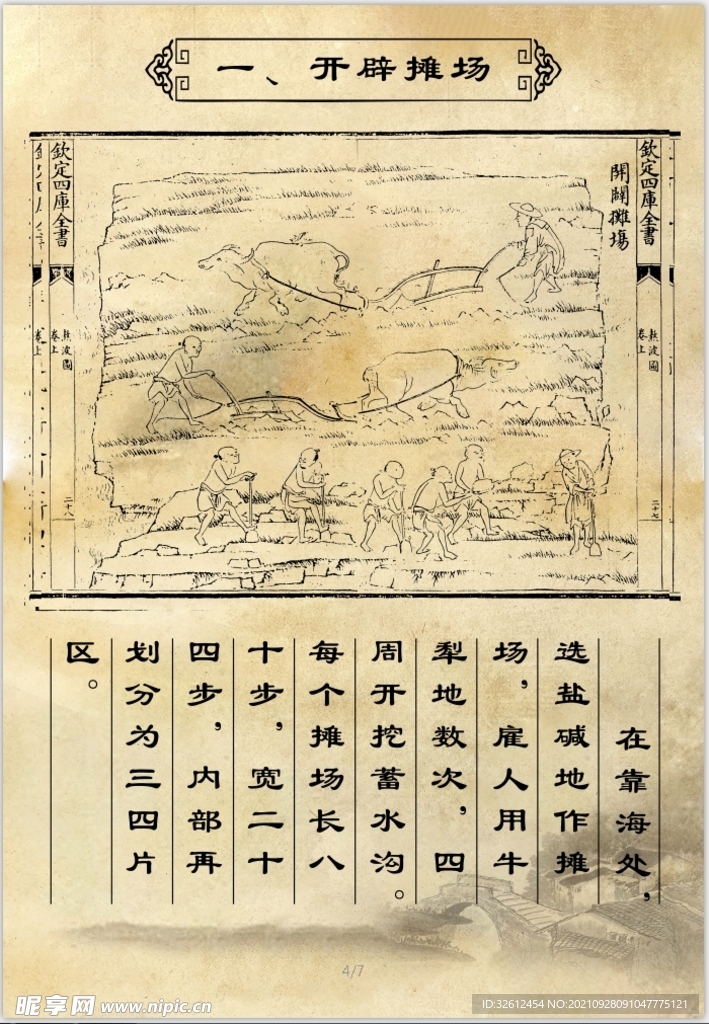 一、开辟摊场
欽定四庫全書
開闢攤場
熬波圖
卷上
二十八
欽定四庫全書
熬波圖
卷上
二十八
在靠海处，
选盐碱地作摊
场，雇人用牛
犁地数次，四
周开挖蓄水沟。
每个摊场长八
十步，宽二十
四步，内部再
划分为三四片
区。
4/7
昵享网 www.nipic.cn
ID:32612454 NO:20210928091047775121